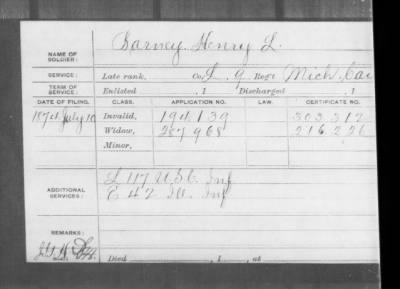 NAME OF SOLDIER: Barney, Henry L.
SERVICE: Late rank, Co. L. 9 Reg't Mich. Cav
TERM OF SERVICE: Enlisted , 1 Discharged , 1
DATE OF FILING. CLASS. APPLICATION NO. LAW. CERTIFICATE NO.
1874 July 10 Invalid, 194139 303312
Widow, 287968 216226
Minor,
ADDITIONAL SERVICES: L 117 U.S.C. Inf
E 42 Ill. Inf
REMARKS:
Died , 1 , at